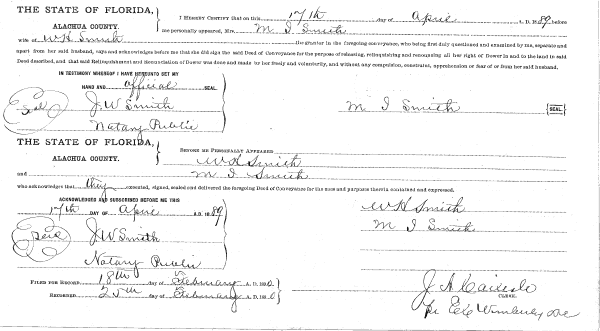 THE STATE OF FLORIDA,
ALACHUA COUNTY.
I HEREBY CERTIFY that on this 17th day of April A. D. 1889, before
me personally appeared, Mrs. M I Smith
wife of W H Smith the grantor in the foregoing conveyance, who being first duly questioned and examined by me, separate and
apart from her said husband, says and acknowledges before me that she did sign the said Deed of Conveyance for the purpose of releasing, relinquishing and renouncing all her right of Dower in and to the land in said
Deed described, and that said Relinquishment and Renunciation of Dower was done and made by her freely and voluntarily, and without any compulsion, constraint, apprehension or fear of or from her said husband.
IN TESTIMONY WHEREOF I HAVE HEREUNTO SET MY
HAND AND official SEAL
Seal J. W Smith
M I Smith {SEAL}
Notary Public
THE STATE OF FLORIDA,
ALACHUA COUNTY.
BEFORE ME PERSONALLY APPEARED
W H Smith
and M I Smith
who acknowledges that they executed, signed, sealed and delivered the foregoing Deed of Conveyance for the uses and purposes therein contained and expressed.
ACKNOWLEDGED AND SUBSCRIBED BEFORE ME THIS
17th DAY OF April A.D. 1889
W H Smith
M I Smith
Seal J. W Smith
Notary Public
FILED FOR RECORD 18th day of February A. D. 1890
RECORDED 25th day of February A. D. 1890
J A Carlisle
CLERK.